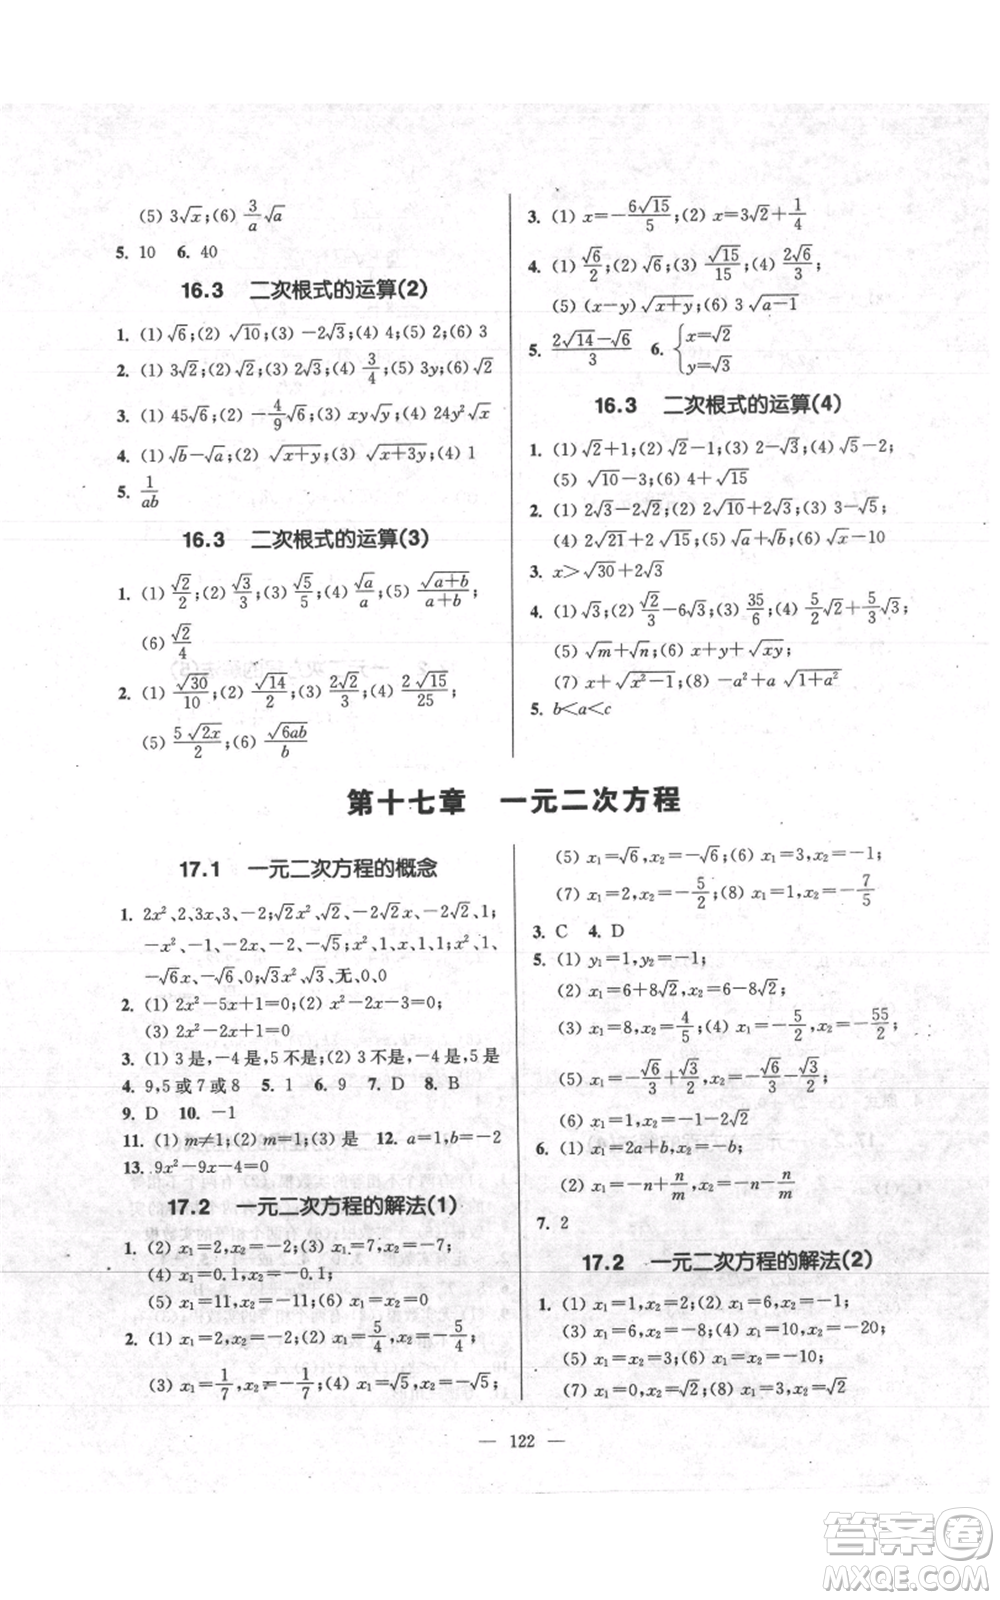 (5) 3√x;(6) 3/a √a
5. 10  6. 40
16.3 二次根式的运算(2)
1. (1) √6;(2) √10;(3) -2√3;(4) 4;(5) 2;(6) 3
2. (1) 3√2;(2) 2√3;(3) 2√3;(4) 3/4;(5) 3y;(6) 4√2
3. (1) 45√6;(2) -4/9 √6;(3) xy√y;(4) 24y²√x
4. (1) √b-√a;(2) √(x+y);(3) √(x+3y);(4) 1
5. 1/ab
16.3 二次根式的运算(3)
1. (1) √2/2;(2) √3/3;(3) √5/5;(4) √a/a;(5) √(a+b)/(a+b);
(6) √2/4
2. (1) √30/10;(2) √14/2;(3) 2√2/3;(4) 2√15/25;
(5) 5√(2x)/2;(6) √(6ab)/b
3. (1) x=-6√15/5;(2) x=3√2+1/4
4. (1) √6/2;(2) √6;(3) √15/15;(4) 2√6/3;
(5) (x-y)√(x+y);(6) 3√(a-1)
5. (2√14-√6)/3  6. {x=√2
y=√3
16.3 二次根式的运算(4)
1. (1) √2+1;(2) √2-1;(3) 2-√3;(4) √5-2;
(5) √10-3;(6) 4+√15
2. (1) 2√3-2√2;(2) 2√10+2√3;(3) 3-√5;
(4) 2√21+2√15;(5) √a+√b;(6) √x-10
3. x>√30+2√3
4. (1) √3;(2) √2/3-6√3;(3) 35/6;(4) 5/2 √2+5/3 √3;
(5) √m+√n;(6) x+y+√(xy);
(7) x+√(x²-1);(8) -a²+a√(1+a²)
5. b<a<c
第十七章 一元二次方程
17.1 一元二次方程的概念
1. 2x²、2、3x、3、-2;√2x²、√2、-2√2x、-2√2、1;
-x²、-1、-2x、-2、-√5;√3x²、√3、x、1、√2;x²、1、
-√6x、-√6、0;√3x²、√3、无、0、0
2. (1) 2x²-5x+1=0;(2) x²-2x-3=0;
(3) 2x²-√2x+1=0
3. (1) 3是,-4是,5不是;(2) 3不是,-4是,5是
4. 9,5或7或8  5. 1  6. 9  7. D  8. B
9. D  10. -1
11. (1) m≠1;(2) m=1;(3) 是  12. a=1,b=-2
13. 9x²-9x-4=0
17.2 一元二次方程的解法(1)
1. (2) x₁=2,x₂=-2;(3) x₁=7,x₂=-7;
(4) x₁=0.1,x₂=-0.1;
(5) x₁=11,x₂=-11;(6) x₁=x₂=0
2. (1) x₁=2,x₂=-2;(2) x₁=5/4,x₂=-5/4;
(3) x₁=1/7,x₂=-1/7;(4) x₁=√5,x₂=-√5;
(5) x₁=√6,x₂=-√6;(6) x₁=3,x₂=-1;
(7) x₁=2,x₂=-5/2;(8) x₁=1,x₂=-7/5
3. C  4. D
5. (1) y₁=1,y₂=-5;
(2) x₁=6+8√2,x₂=6-8√2;
(3) x₁=8,x₂=4/5;(4) x₁=-5/2,x₂=-55/2;
(5) x₁=√6/3+√3/2,x₂=-√6/3-√3/2;
(6) x₁=1,x₂=-1-2√2
6. (1) x₁=2a+b,x₂=-b;
(2) x₁=-n+n/m,x₂=-n-n/m
7. 2
17.2 一元二次方程的解法(2)
1. (1) x₁=1,x₂=2;(2) x₁=6,x₂=-1;
(3) x₁=6,x₂=-8;(4) x₁=10,x₂=-20;
(5) x₁=x₂=3;(6) x₁=x₂=-10;
(7) x₁=0,x₂=√2;(8) x₁=3,x₂=√2
— 122 —
答案圈
MXQE.COM